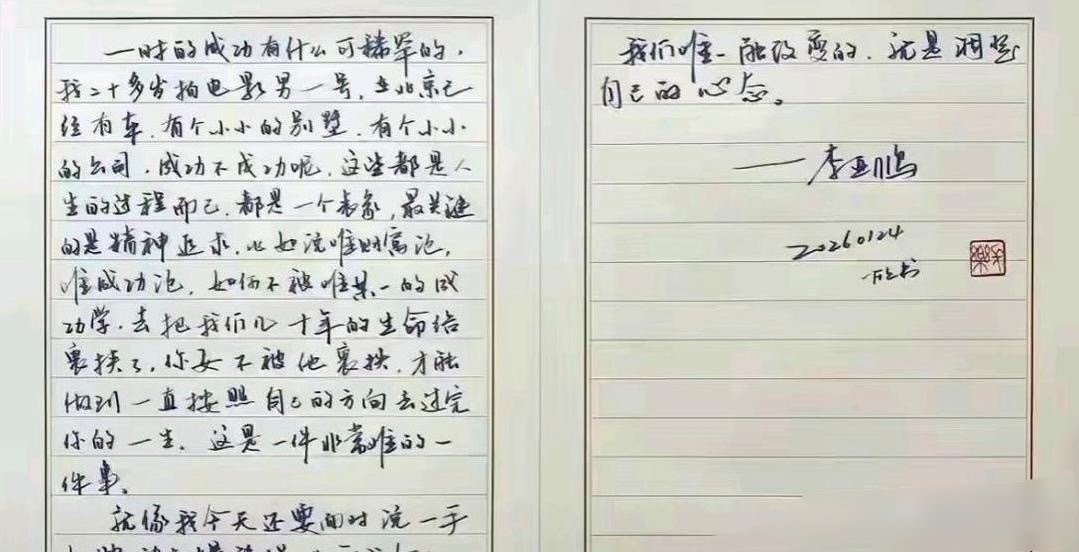 一时的成功有什么可稀罕的,
我二十多岁拍电影男一号,在北京已
经有车,有个小小的别墅,有个小小
的公司,成功不成功呢,这些都是人
生的过程而已,都是一个表象,最关键
的是精神追求,比如说唯财富论,
唯成功论,如何不被唯某一的成
功学,去把我们几十年的生命给
裹挟了,你要不被他裹挟,才能
做到一直按照自己的方向去过完
你的一生,这是一件非常难的一
件事。
就像我今天还要面对说一手
我们唯一能改变的,就是调整
自己的心态。
——李亚鹏
20260124